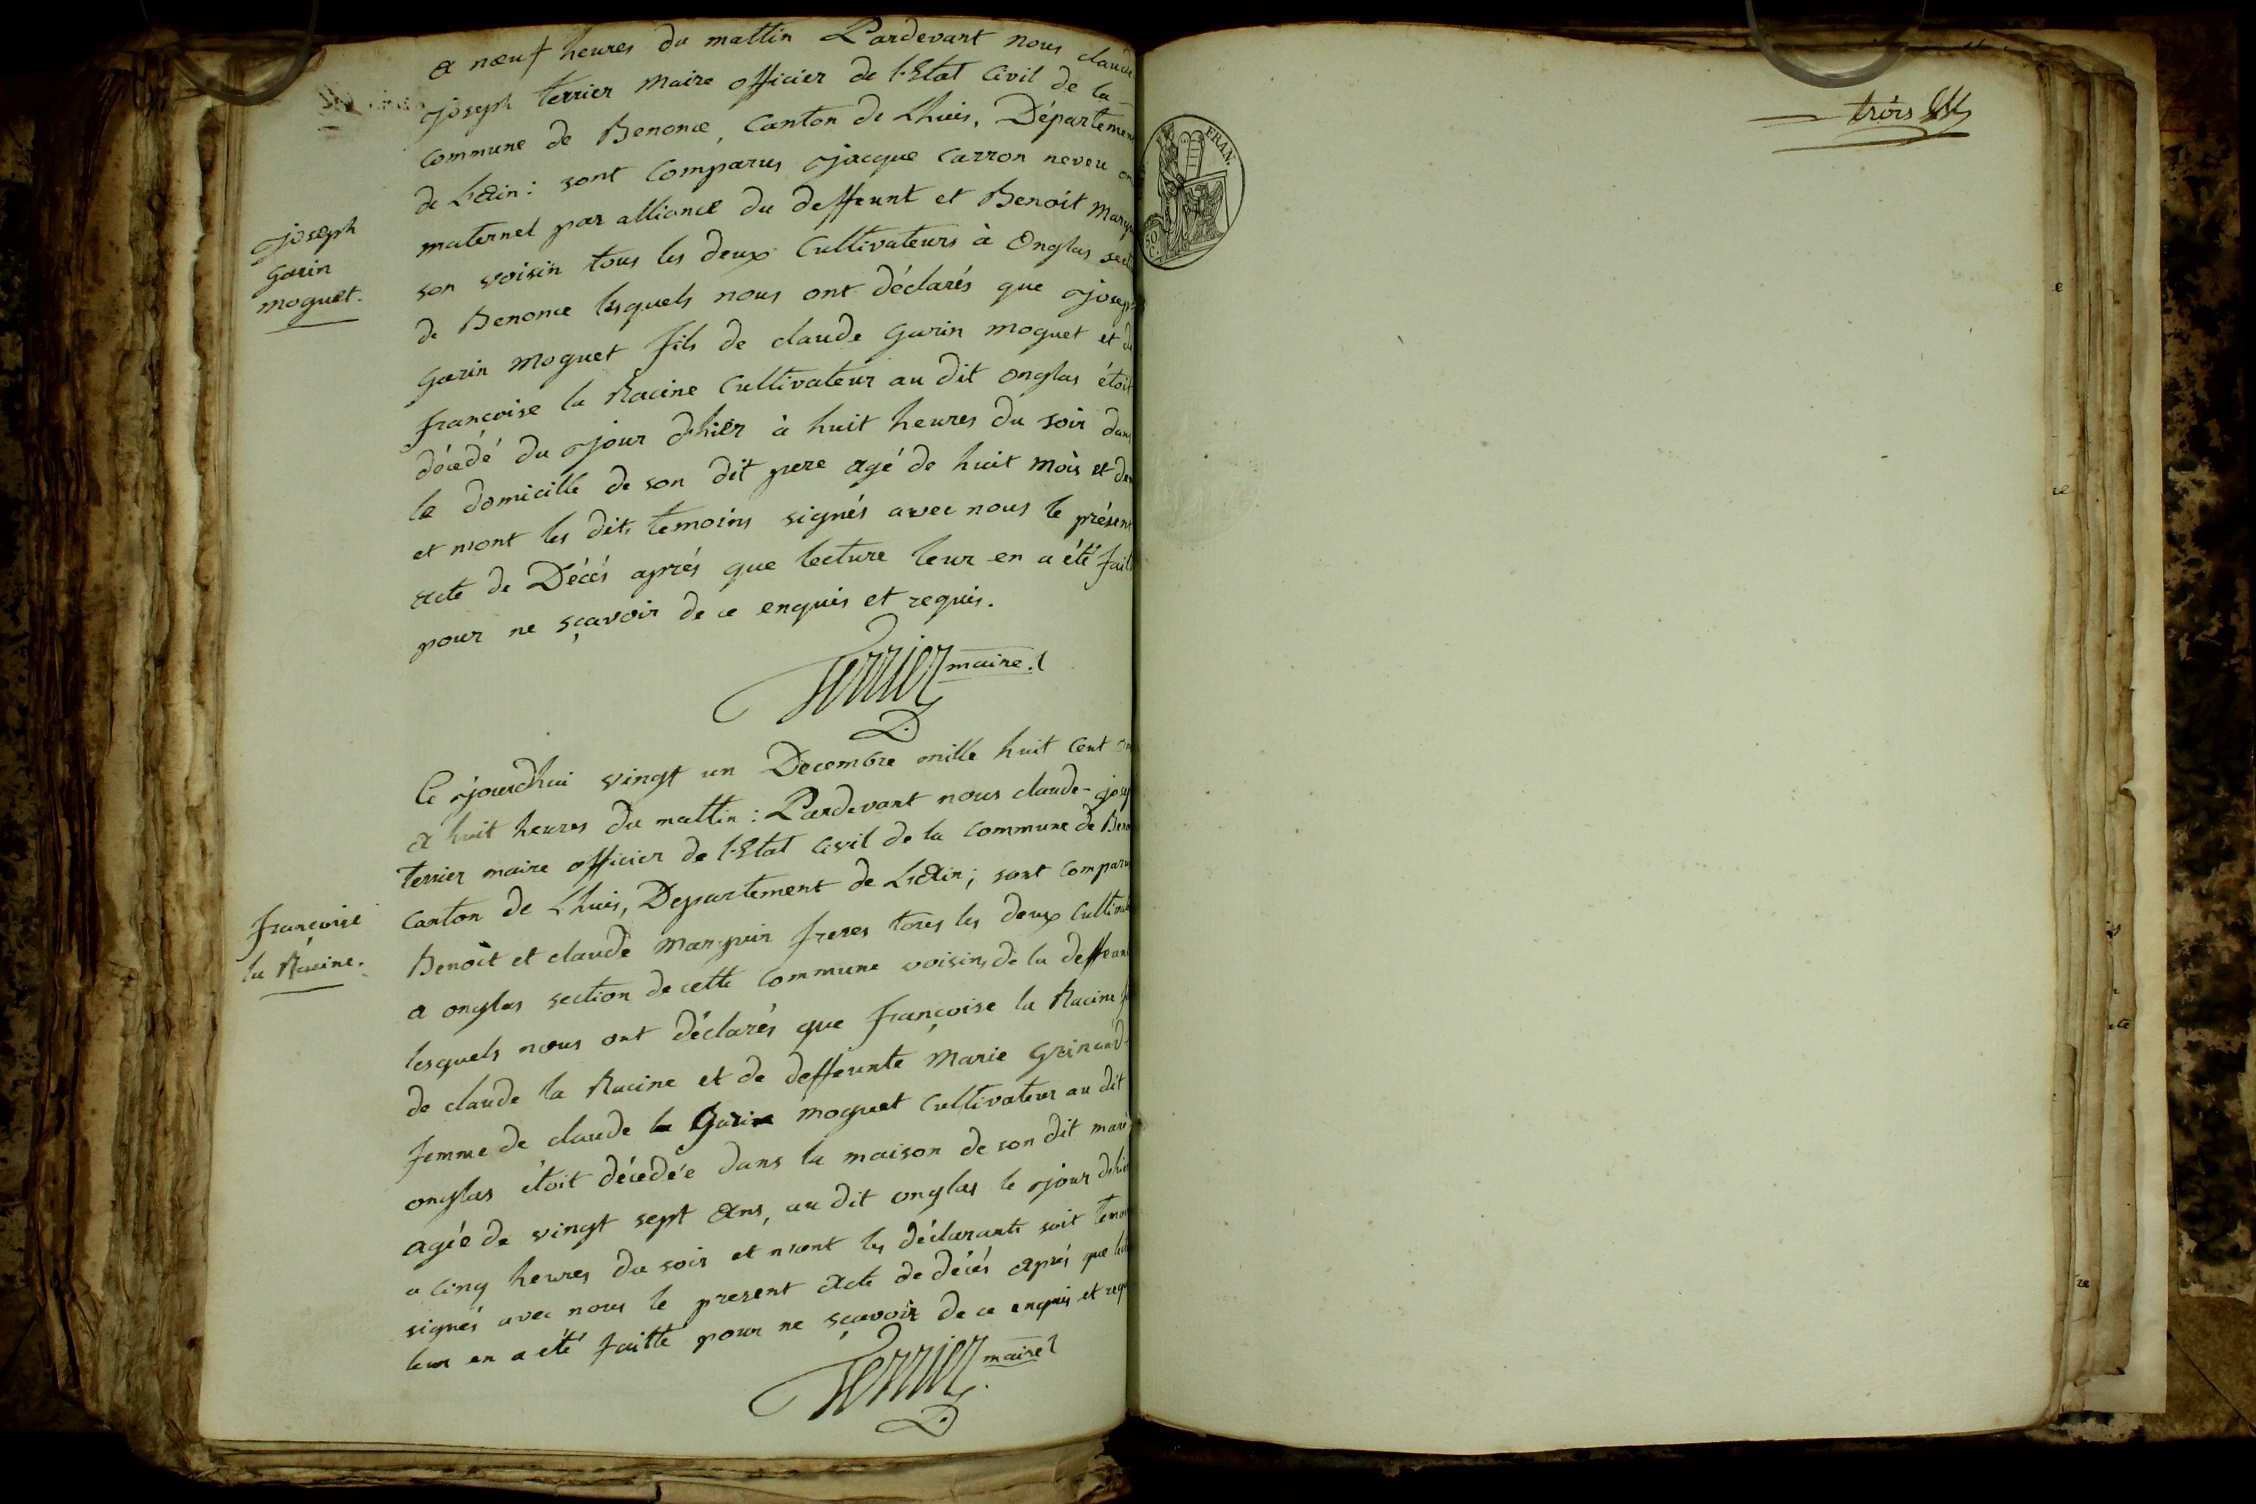 a nœuf heures du mattin Pardevant nous claude
joseph terrier maire officier de l'Etat Civil de la
commune de Benonce, Canton de Lhuis, Département
de L'Ain: sont Comparus jacque Carron neveu
maternel par alliance du deffeunt et Benoit
son voisin tous les deux Cultivateurs à Onglas
de Benonce lesquels nous ont déclarés que joseph
Garin Moguet fils de claude Garin Moguet et de
francoise la Racine Cultivateur au dit onglas étoit
décédé du jour d'hièr à huit heures du soir dans
le domicille de son dit pere agé de huit mois et
et n'ont les dits temoins signés avec nous le présent
acte de Décés aprés que lecture leur en a été faite
pour ne sçavoir de ce enquis et requis.
joseph
garin
moguet.
Terrier maire.
Ce jourdhui vingt un Decembre mille huit cent
a huit heures du mattin: Pardevant nous claude-
terrier maire officier de l'Etat Civil de la commune de
Canton de Lhuis, Departement de L'Ain; sont comparus
Benoit et claude Marguin freres tous les deux
a onglas section de cette commune voisins de la
lesquels nous ont déclarés que françoise la Racine
de claude la Racine et de deffeunte Marie
femme de claude Garin moguet cultivateur au dit
onglas étoit décedée dans la maison de son dit mari
agée de vingt sept Ans, au dit onglas le jour d'hier
a cinq heures du soir et n'ont les déclarants soit
signés avec nous le present Acte de décés aprés que
leur en a été faitte pour ne sçavoir de ce enquis et
françoise
la Racine.
Terrier maire
trois
FRAN.
50
C.